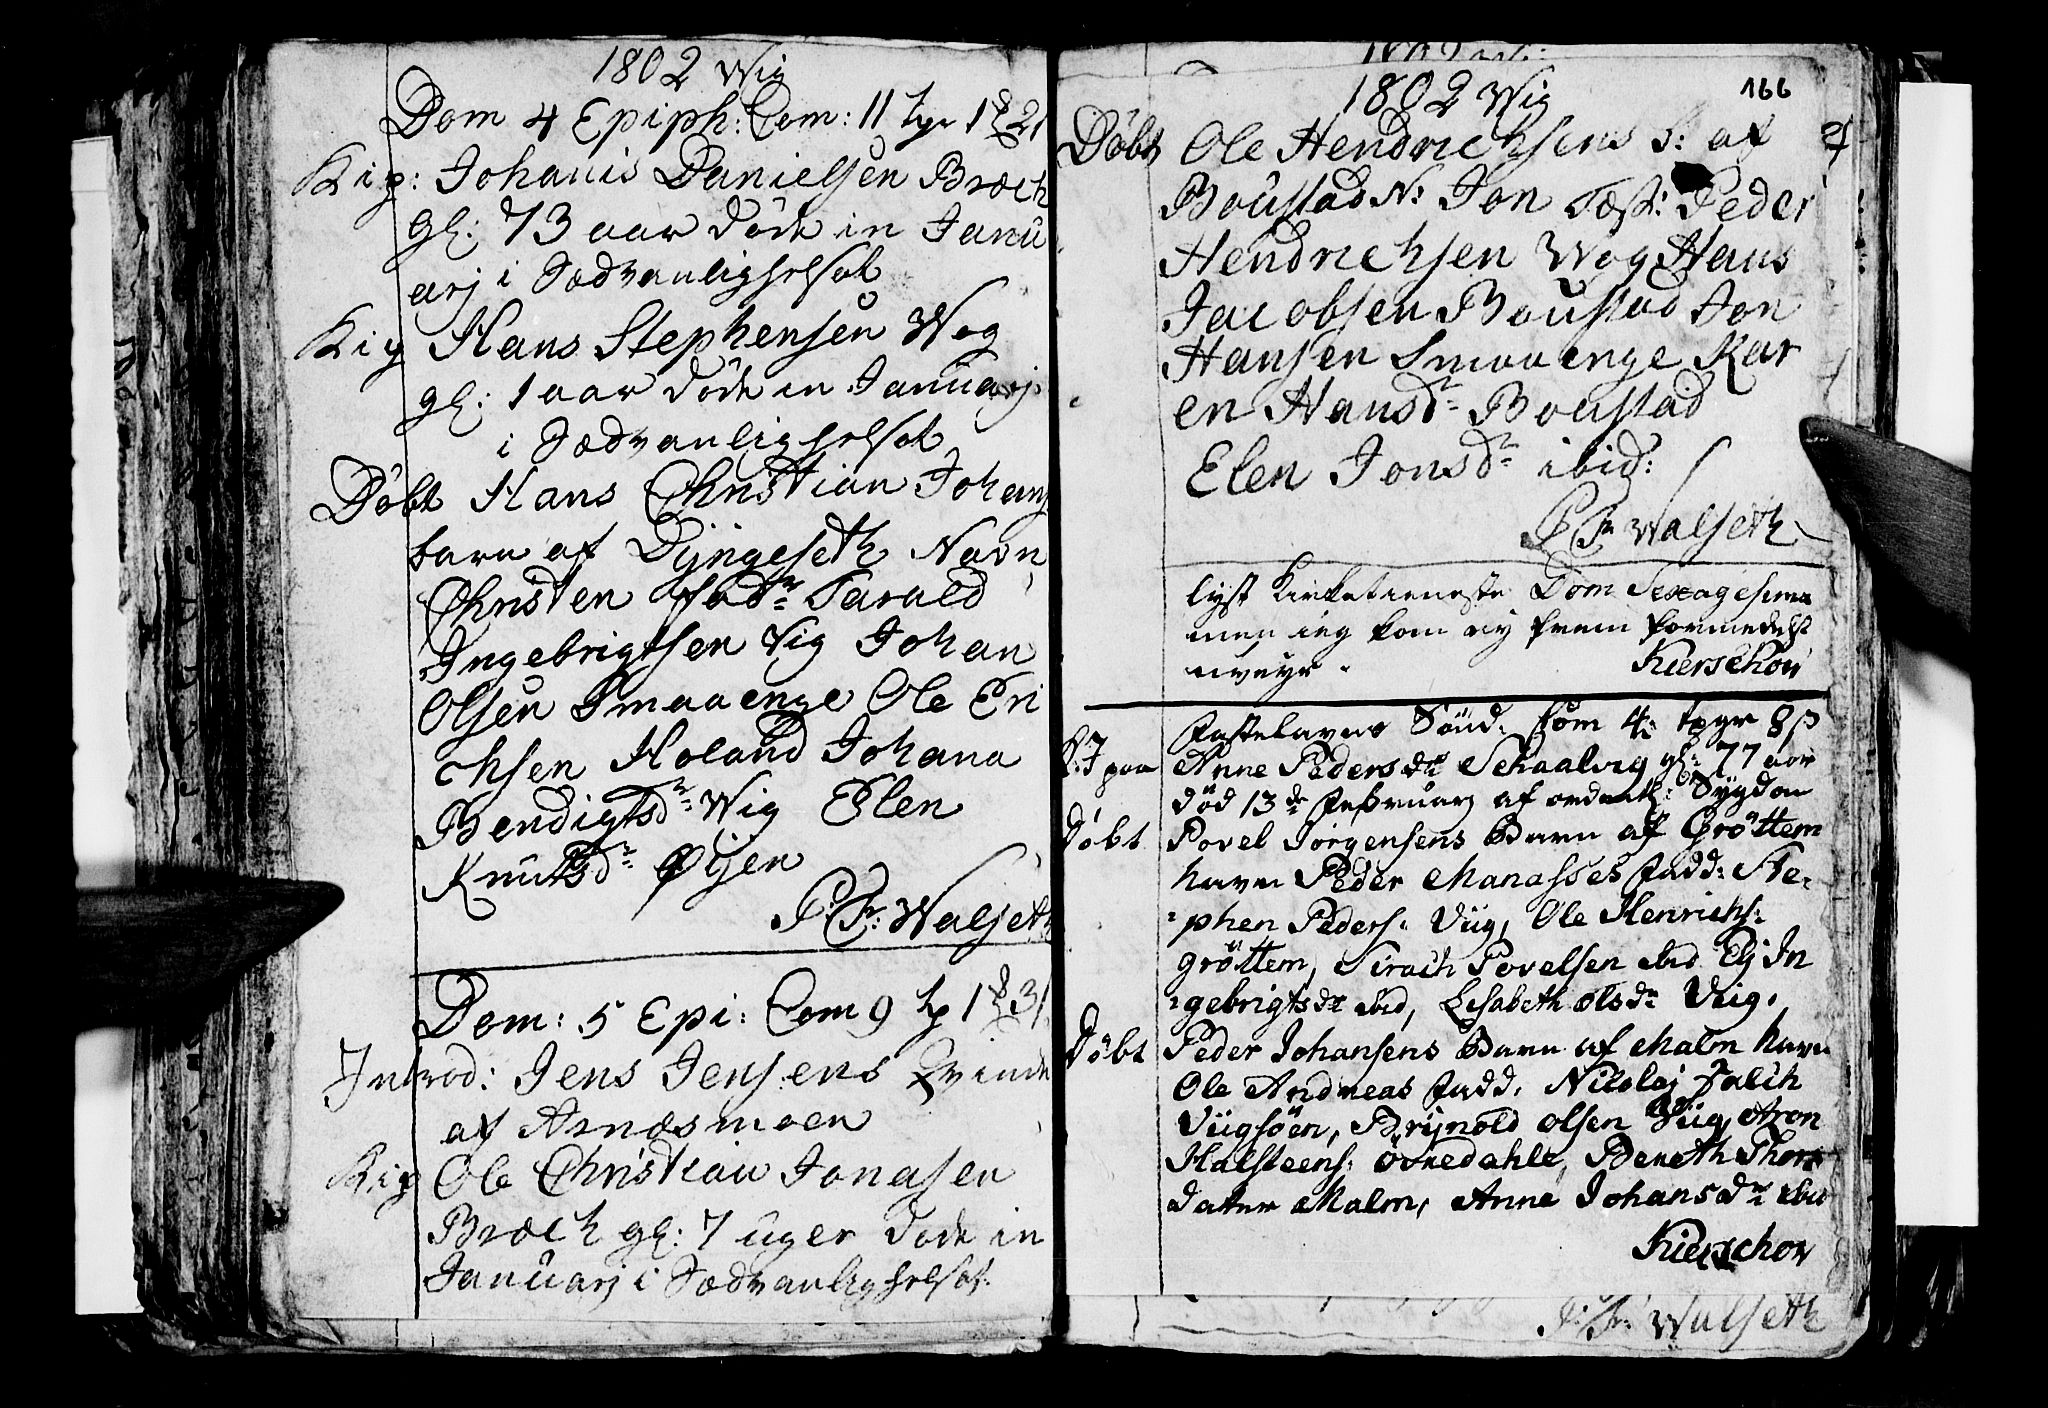 1802 Wig
Dom 4 Epiph: Com: 11
Johanis Danielsen Bræck
gl: 73 aar døde in Janu
arj i Sædvanlig helsot
Hans Stephensen Wog
gl: 1 aar døde in Januarj
i Sædvanlig helsot
Døbt Hans Christian Johans
barn af Dÿngeseth Navn
Christen Fadr Tarald
Ingebrigtsen Vig Johan
Olsen Smaaenge Ole Eri
chsen Holand Johana
Bendigtsdr Wig Elen
Knutsdr Øÿen
Walseth
Dom: 5 Epi: Com 9
Introd: Jens Jensens Qvinde
af Arnæsmoen
Ole Christian Jonasen
Bræck gl: 7 uger døde in
Januarj i Sædvanlig helsot
166
1802 Wig
Døbt Ole Hendrichsens S: af
Boustad N: Jon Test: Peder
Hendrichsen Wog Hans
Jacobsen Boustad Jon
Hansen Smaaenge Kar
en Hansdr Boustad
Elen Jonsdr ibid:
Walseth
lyst Kirketieneste Dom Sexagesima
men ieg kom ey frem formedelst
uveyr. Kierschow
Fastelavns Sønd. Com 4
Anne Pedersdr Schaalvig gl: 77 aar
død 13de Februarj af Sygdom
Døbt Povel Jørgensens Barn af Grøttem
havn Peder Manasses Fadd: Ste-
phen Peders: Viig, Ole Henrichs:
Grøttem, Sirach Povelsen ibid Elj In
gebrigtsdr ibid, Lisabeth Olsdr Viig.
Døbt Peder Johansens Barn af Malm havn
Ole Andreas Fadd. Nicolaj Falch
Viigsøen, Brÿnold Olsen Viig, Aron
Halsteens: Øvredahle, Bereth Thors
dater Malm, Anne Johansdr ibid
Kierschow
Walseth